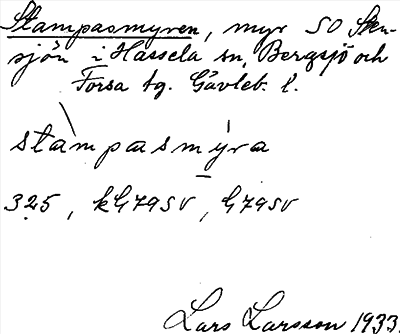 Stampasmyren, myr SO Sten-
sjön i Hassela sn, Bergsjö och
Forsa tg. Gävleb. l.
stàmpasmýra
325, kG79SV, G79SV
Lars Larsson 1933.